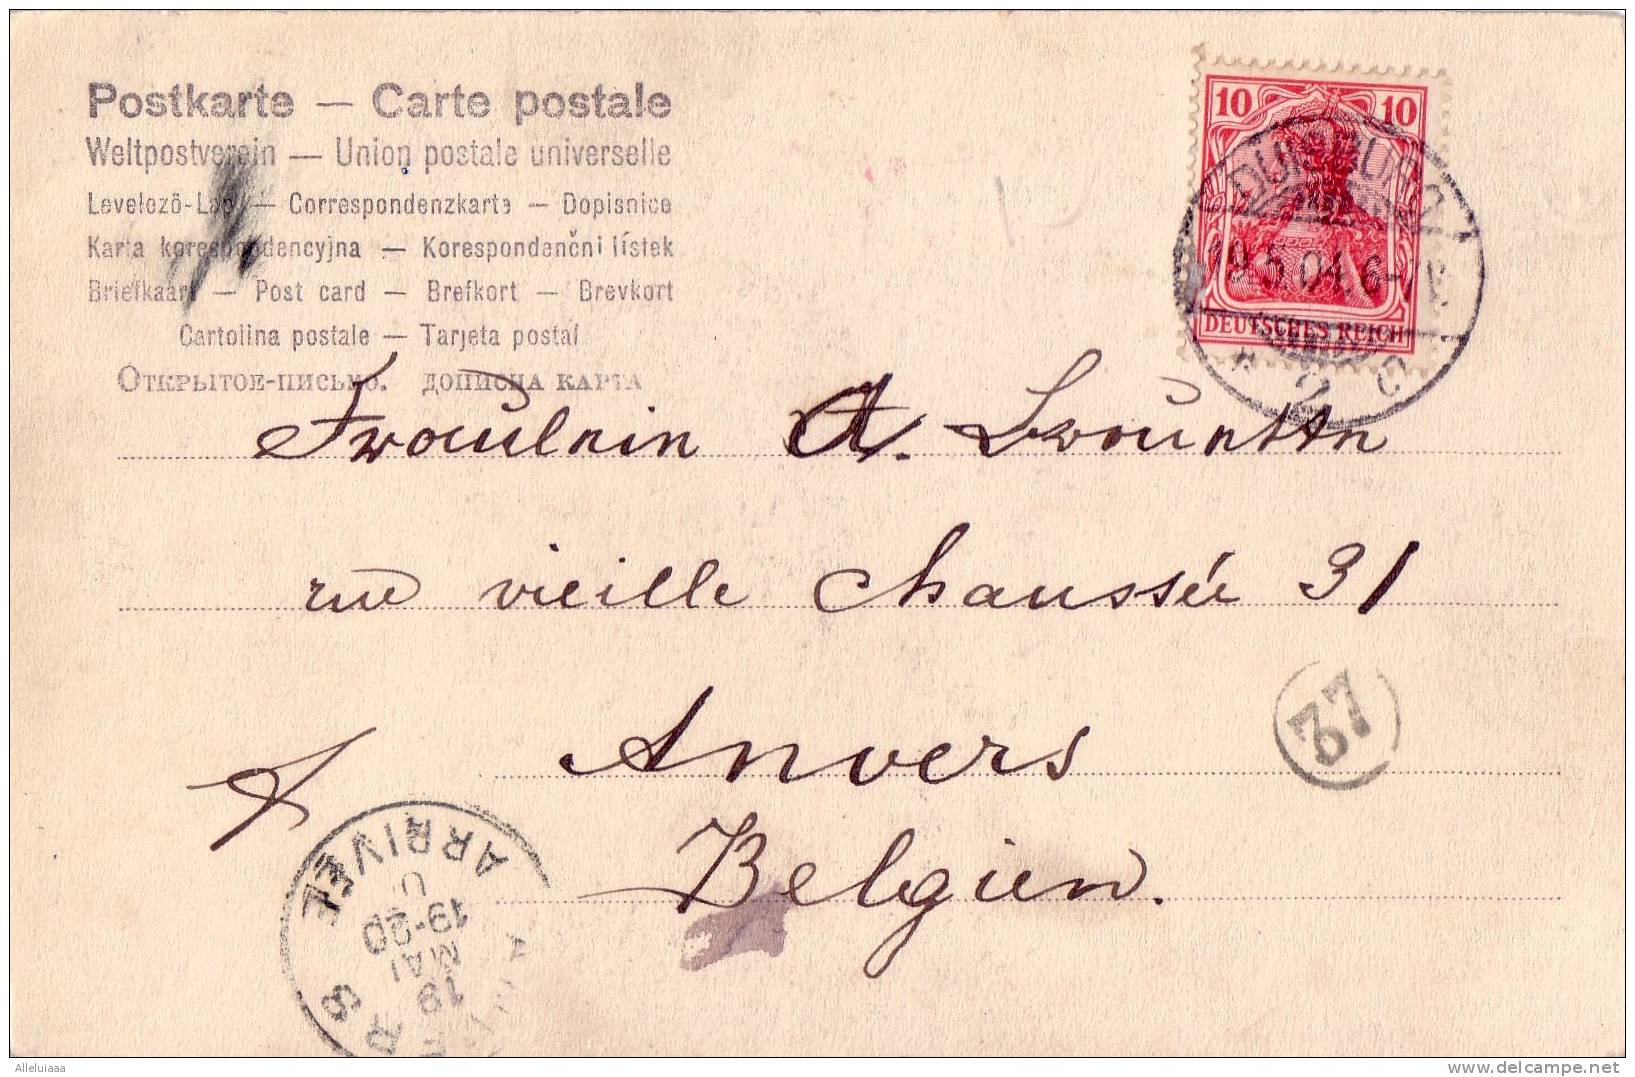 Postkarte — Carte postale
Weltpostverein — Union postale universelle
Levelezö-Lap — Correspondenzkarte — Dopisnice
Karta korespondencyjna — Korespondenční lístek
Briefkaart — Post card — Brefkort — Brevkort
Cartolina postale — Tarjeta postal
Открытое-письмо. дописна карта
10 10
DEUTSCHES REICH
DUISBURG
19.5.04. 6-7
* 2 c
Fräulein A.
rue vieille chaussée 31
37
Anvers
Belgien.
ANVERS
19
MAI
19-20
ARRIVEE
Alleluiaaa
www.delcampe.net